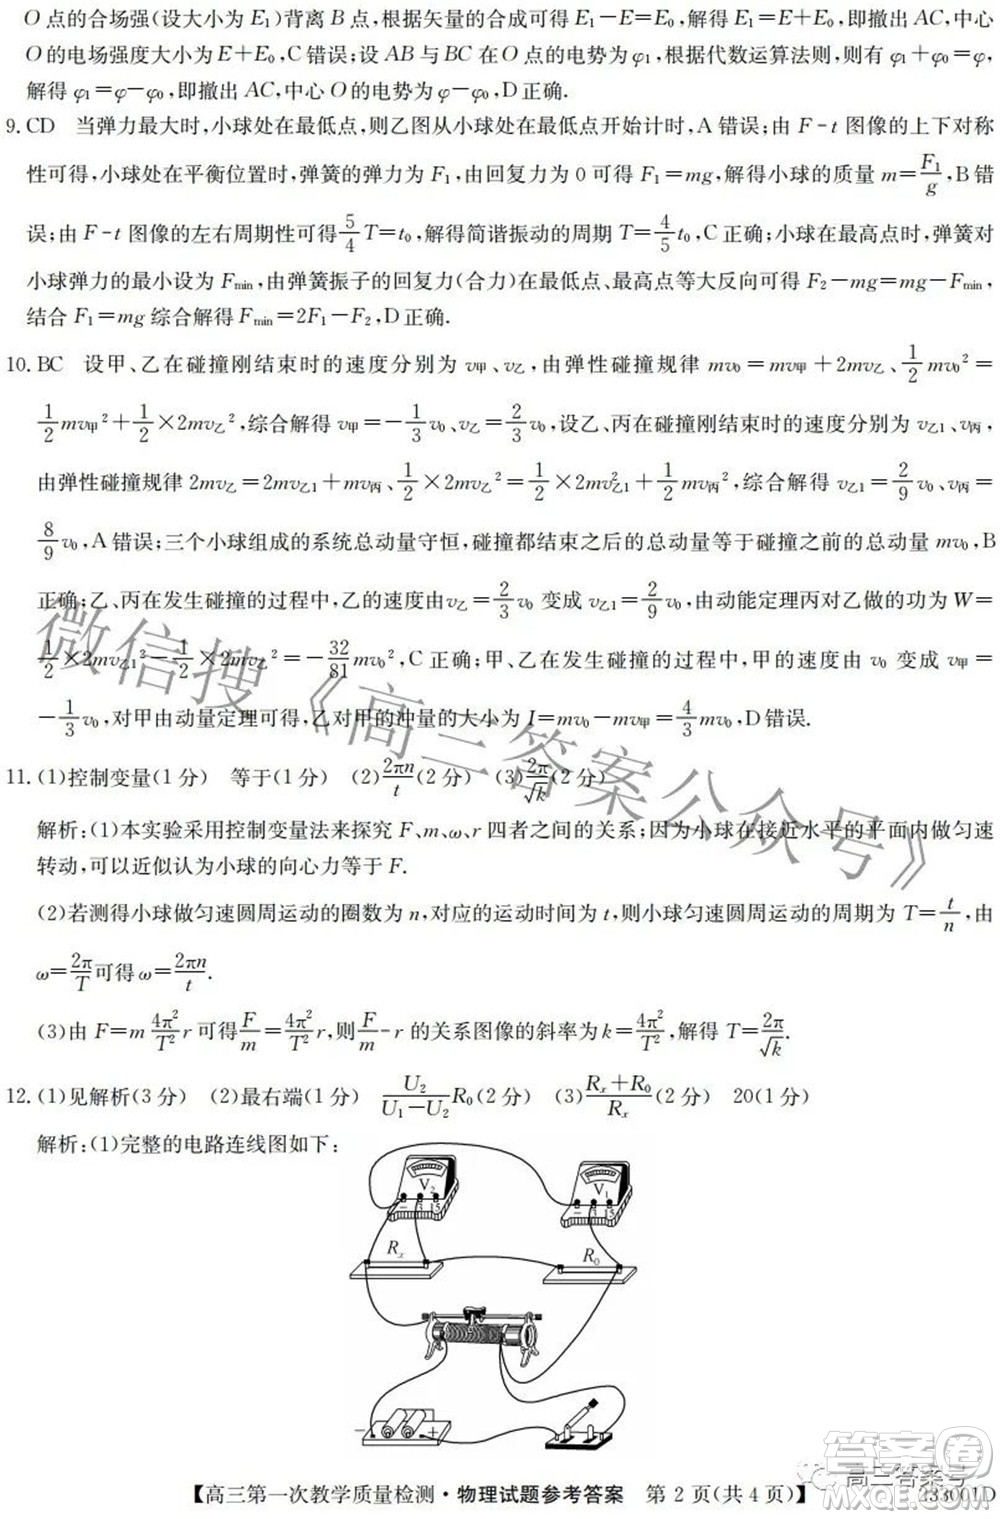 O 点的合场强(设大小为 E₁)背离 B 点,根据矢量的合成可得 E₁-E=E₀,解得 E₁=E+E₀,即撤出 AC,中心
O 的电场强度大小为 E+E₀,C 错误;设 AB 与 BC 在 O 点的电势为 φ₁,根据代数运算法则,则有 φ₁+φ₀=φ,
解得 φ₁=φ-φ₀,即撤出 AC,中心 O 的电势为 φ-φ₀,D 正确.
9. CD 当弹力最大时,小球处在最低点,则乙图从小球处在最低点开始计时,A 错误;由 F-t 图像的上下对称
性可得,小球处在平衡位置时,弹簧的弹力为 F₁,由回复力为 0 可得 F₁=mg,解得小球的质量 m=F₁/g,B 错
误;由 F-t 图像的左右周期性可得 5/4 T=t₀,解得简谐振动的周期 T=4/5 t₀,C 正确;小球在最高点时,弹簧对
小球弹力的最小设为 Fmin,由弹簧振子的回复力(合力)在最低点、最高点等大反向可得 F₂-mg=mg-Fmin,
结合 F₁=mg 综合解得 Fmin=2F₁-F₂,D 正确.
10. BC 设甲、乙在碰撞刚结束时的速度分别为 v甲、v乙,由弹性碰撞规律 mv₀=mv甲+2mv乙、1/2 mv₀²=
1/2 mv甲²+1/2×2mv乙²,综合解得 v甲=-1/3 v₀、v乙=2/3 v₀,设乙、丙在碰撞刚结束时的速度分别为 v乙1、v丙,
由弹性碰撞规律 2mv乙=2mv乙1+mv丙、1/2×2mv乙²=1/2×2mv乙1²+1/2 mv丙²,综合解得 v乙1=2/9 v₀、v丙=
8/9 v₀,A 错误;三个小球组成的系统总动量守恒,碰撞都结束之后的总动量等于碰撞之前的总动量 mv₀,B
正确;乙、丙在发生碰撞的过程中,乙的速度由 v乙=2/3 v₀ 变成 v乙1=2/9 v₀,由动能定理丙对乙做的功为 W=
1/2×2mv乙1²-1/2×2mv乙²=-32/81 mv₀²,C 正确;甲、乙在发生碰撞的过程中,甲的速度由 v₀ 变成 v甲=
-1/3 v₀,对甲由动量定理可得,乙对甲的冲量的大小为 I=mv₀-mv甲=4/3 mv₀,D 错误.
11. (1)控制变量(1 分) 等于(1 分) (2)2πn/t(2 分) (3)2π/√k(2 分)
解析:(1)本实验采用控制变量法来探究 F、m、ω、r 四者之间的关系;因为小球在接近水平的平面内做匀速
转动,可以近似认为小球的向心力等于 F.
(2)若测得小球做匀速圆周运动的圈数为 n,对应的运动时间为 t,则小球匀速圆周运动的周期为 T=t/n,由
ω=2π/T 可得 ω=2πn/t.
(3)由 F=m 4π²/T² r 可得 F/m=4π²/T² r,则 F/m-r 的关系图像的斜率为 k=4π²/T²,解得 T=2π/√k.
12. (1)见解析(3 分) (2)最右端(1 分) U₂/(U₁-U₂) R₀(2 分) (3)(Rₓ+R₀)/Rₓ(2 分) 20(1 分)
解析:(1)完整的电路连线图如下:
V₂ V₁
- 3 15 - 3 15
Rₓ R₀
- +
【高三第一次教学质量检测·物理试题参考答案 第 2 页(共 4 页)】 233001D
微信搜《高三答案公众号》
高三答案号
答案圈